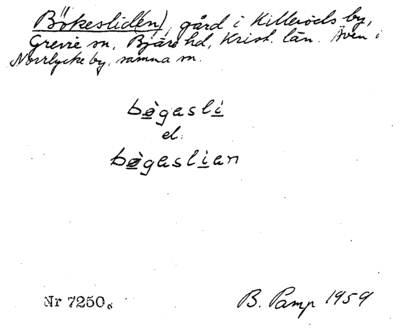 Bökeslid(en), gård i Killeröds by,
Grevie sn, Bjäre hd, Krist. län. Även i
Norrlycke by, samma sn.
bø̀gasli
el.
bø̀gaslian
Nr 7250
B. Pamp 1959